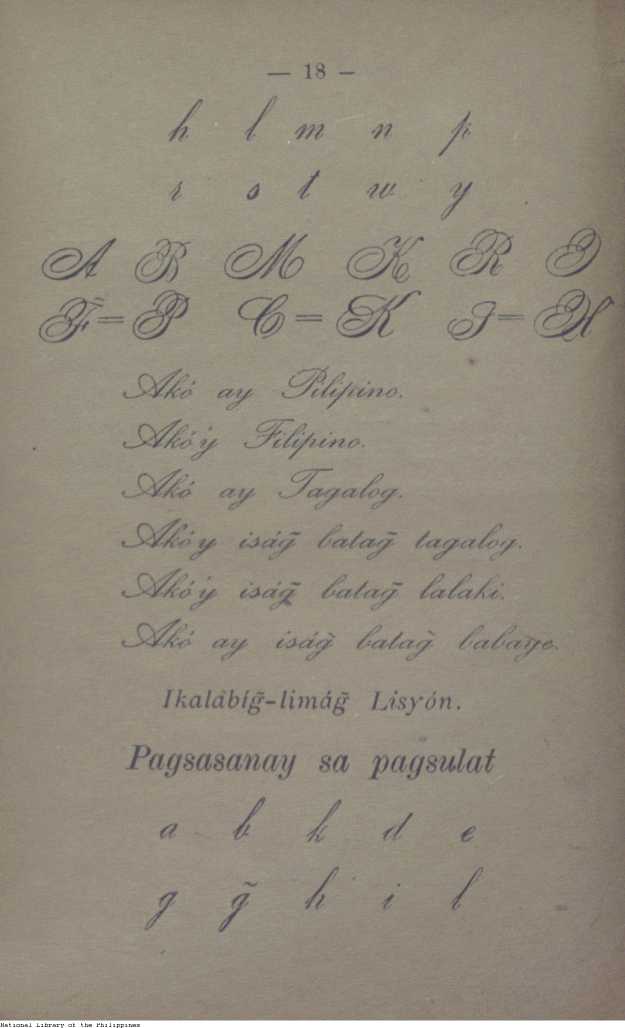 — 18 —
h l m n p
r s t w y
A B M K R I
F̃ = P C = K J = H
Akó ay Pilipino.
Akó'y Filipino.
Akó ay Tagalog.
Akóy iság̃ batag̃ tagalog.
Akó'y iság̃ batag̃ lalaki.
Akó ay iság̃ batag̃ babaye.
Ikalabíg̃-limág̃ Lisyón.
Pagsasanay sa pagsulat
a b k d e
g g̃ h i l
National Library of the Philippines